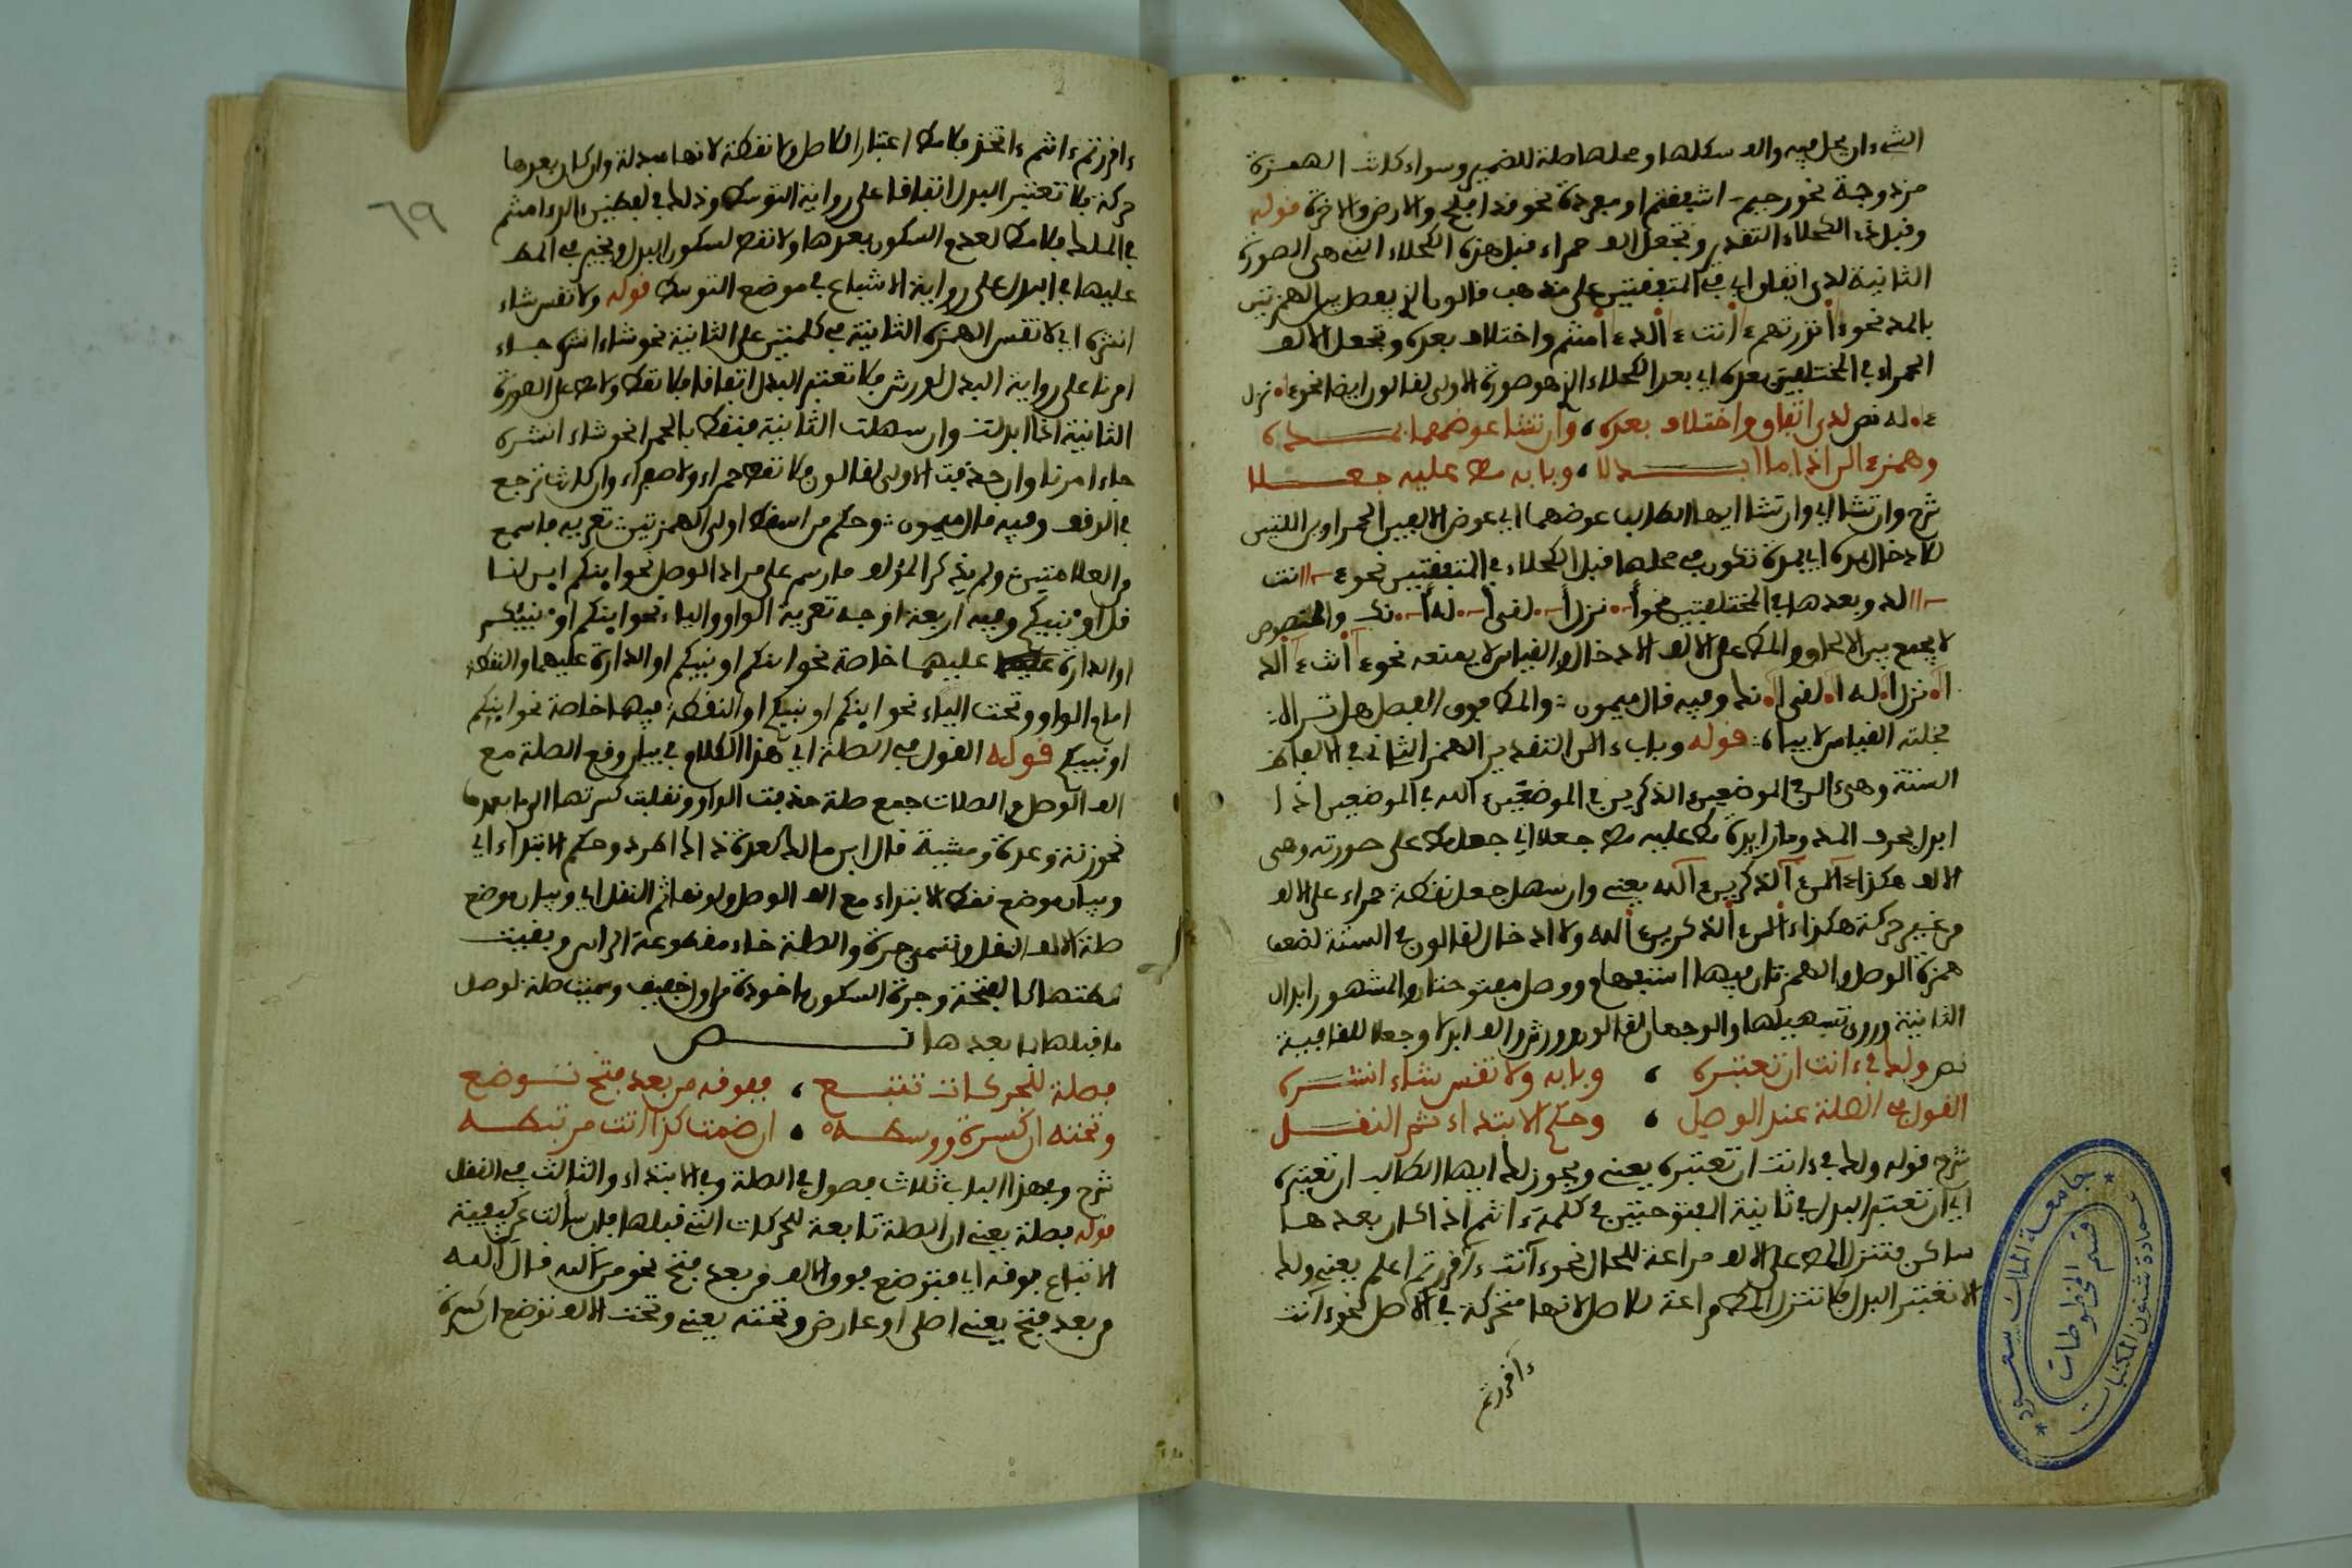 الشيء ان يحل فيه والف شكلها ومحلها صلة للضمير وسواء كانت الهمزة
مزدوجة نحو رحيم اشفقتم او مفردة نحو قد افلح والارض والاخرة قوله
وقبل ذي الكحلاء التقدير وتجعل الف حمراء قبل هذه الكحلاء التي هي الصورة
الثانية لدى اتفاق اي في المتفقتين على مذهب قالون الذي يفصل بين الهمزتين
بالمد نحو ءانذرتهم ءانت ءالد ءامنتم واختلاف بعده وتجعل الالف
الحمراء في المختلفتين بعده اي بعد الكحلاء الذي هو صورة الاولى لقالون ايضا نحو اءنزل
اءله نص لدى اتفاق واختلاف بعده، وان تشا عوضهما بمده
وهمزه الراذا ما ابدلا، وبابه مط عليه جعلا
شرح وان تشا اي وان تشا ايها الطالب عوضهما اي عوض الالفين الحمراوين اللتين
للادخال بمدة اي بمدة تكون في محلها قبل الكحلاء في المتفقتين نحو ءانت
ءالد وبعدها في المختلفتين نحو أءنزل أءلقي أءله أءنك والمنصوص
لا يجمع بين الالحاق والمط على الالف الادخال والقياس لا يمنعه نحو ءآنت ءآلد
اءنزل اءله اءلقي اءنك وفيه قال ميمون والمط فوق الفصل هل تراه
نجلته القياس لا يباه قوله وباب ءالن التقدير الهمز الثاني في الالفاظ
الستة وهي ءالن في الموضعين ءالذكرين في الموضعين ءالله في الموضعين اذا
ابدل بحرف المد وما زايدة مط عليه مط جعلا اي جعل مط على صورته وهي
الالف هكذا ءآلن ءآلذكرين ءآلله يعني وان سهل جعل نقطة حمراء على الالف
من غير حركة هكذا ءالن ءالذكرين ءالله ولا ادخال لقالون في الستة لضعف
همزة الوصل والهمزتان فيها استفهام ووصل مفتوحتان والمشهور ابدال
الثانية وروي تسهيلها والوجهان لقالون وورش والف ابدلا وجعلا للقافية
نص ولك في ءانت ان تعتبره ، وبابه ولا تقس شاء انشره
القول في الصلة عند الوصل ، وحكم الابتداء ثم النقل
شرح قوله ولك في ءانت ان تعتبره يعني ويجوز لك ايها الطالب ان تعتبره
اي ان تعتبر البدل في ثانية المفتوحتين في كلمة ءانتم اذا كان بعدها
ساكن فتنزل المط على الالف مراعة للحال نحو ءآنت ءآقررتم اعلم يعني ولك
الا تعتبر البدل فلا تنزل المط مراعة للاصل لانها متحركة في الاصل نحو ءانت
ءاقررتم
٦٩
ءاقررتم ءانتم ءاتخذ فلا مط اعتبارا للاصل ولا نقطة لانها مبدلة وان كان بعدها
حركة فلا تعتبر البدل اتفاقا على رواية التوسط وذلك في لفظين ءالد ءامنتم
في الملك فلا مط لعدم السكون بعدها ولا نقط لسكون البدل ويخير في المط
عليها في ابدل على رواية الاشباع في موضع التوسط قوله ولا تقس شاء
انشره اي لا تقس الهمزة الثانية في كلمتين على الثانية نحو شاء انشره جاء
امرنا على رواية البدل لورش فلا تعتبر البدل اتفاقا فلا نقط ولا مط على الصورة
الثانية اذا ابدلت وان سهلت الثانية فنقط بالحمرا نحو شاء انشره
جاء امرنا وان حذفت الاولى لقالون فلا نقط حمراء ولا صفراء وان كانت ترجع
في الوقف وفيه قال ميمون وحكم من اسقط اولى الهمزتين تعرية فاسمع
من العلامتين ولم يذكر المؤلف ما رسم على مراد الوصل نحو اينكم اين لنا
قل اؤنبيكم وفيه اربعة اوجه تعرية الواو والياء نحو اينكم اؤنبيكم
او الدارة عليهما خاصة نحو اينكم اونبيكم او الدارة عليهما والنقطة
امام الواو وتحت الياء نحو اينكم اونبيكم او النقطة فيهما خاصة نحو اينكم
اونبيكم قوله القول في الصلة اي هذا الكلام في بيان وقع الصلة مع
الف الوصل والصلات جمع صلة حذفت الواو ونقلت كسرتها الى ما بعدها
نحو زنة وعدة ومشية قال ابن مالك كعدة ذاك اطرد وحكم الابتداء اي
وبيان موضع نقط الابتداء مع الف الوصل ولونها ثم النقل اي وبيان موضع
صلة الالف النقل وتسمى جرة والصلة خاء مقطوعة الراس وبقيت
مطتها الى الفتحة وجرة السكون ماخوذة من اول خفيف وسميت صلة لوصل
ما قبلها بما بعدها نص
فصلة للحركات تتبع ، ففوقه من بعد فتح توضع
وتحته ان كسرة ووسطه ، ان ضمت كذا اتت مرتبطه
شرح وفي هذا الباب ثلاث فصول في الصلة وفي الابتداء والثالث في النقل
قوله فصلة يعني ان الصلة تابعة للحركات التي قبلها فان سألت عن كيفية
الاتباع ففوقه اي فتوضع فوق الالف من بعد فتح نحو من الله قال الله
من بعد فتح يعني اصلي او عارض وتحته يعني وتحت الالف توضع ان كسرة
جامعة الملك سعود
عمادة شئون المكتبات
قسم المخطوطات